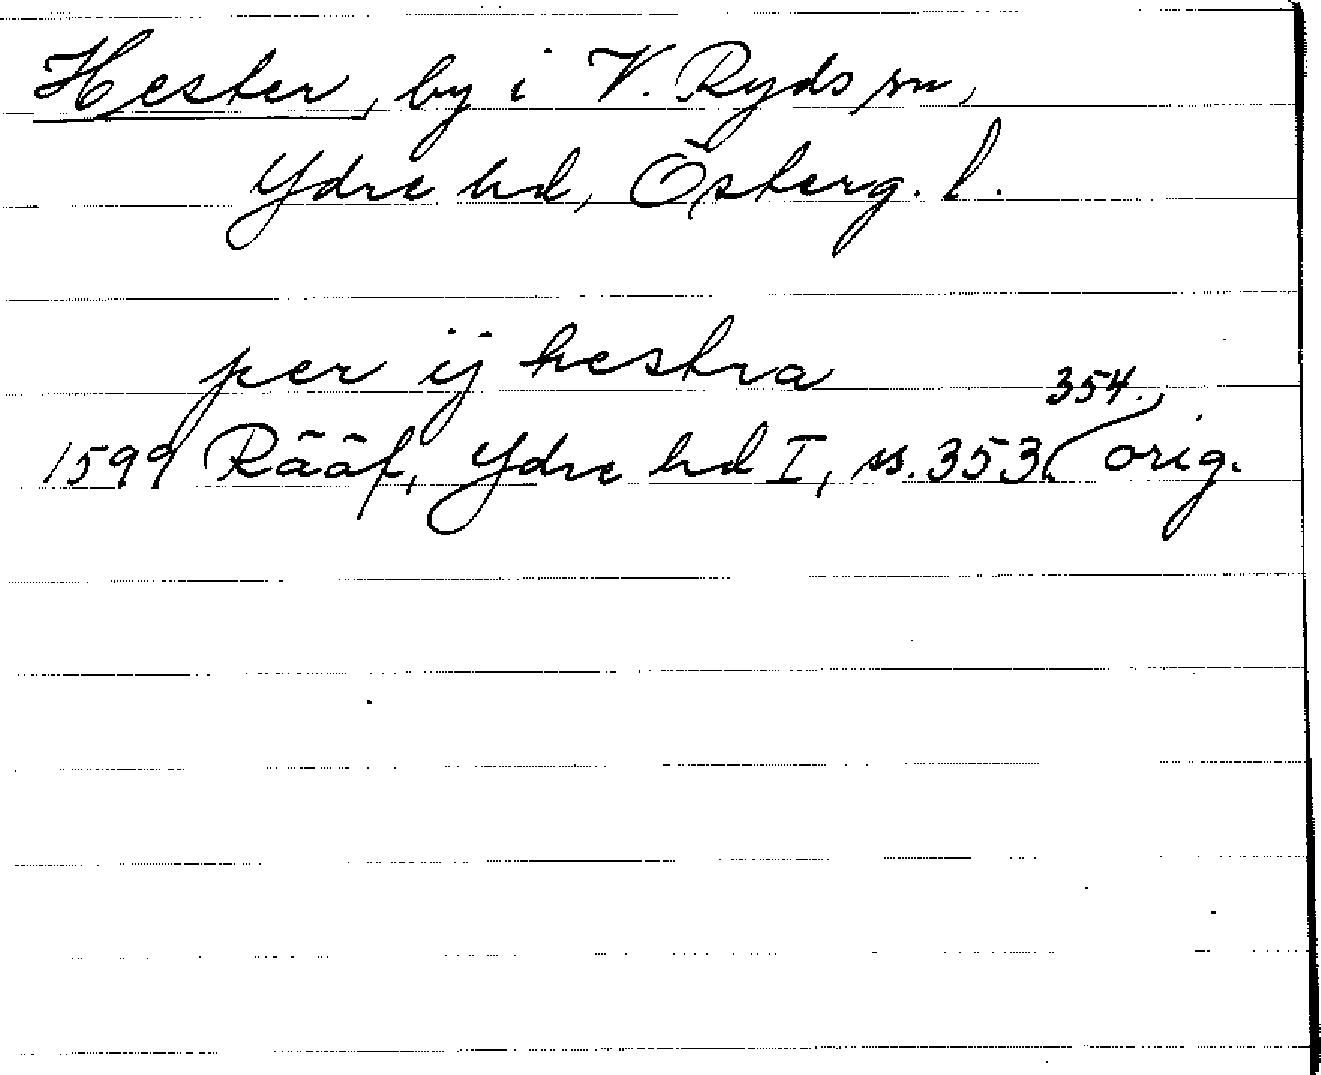 Hester, by i V. Ryds sn,
Ydre hd, Österg. l.
per ij hestra
1599 Rääf, Ydre hd I, ss. 353, 354, orig.